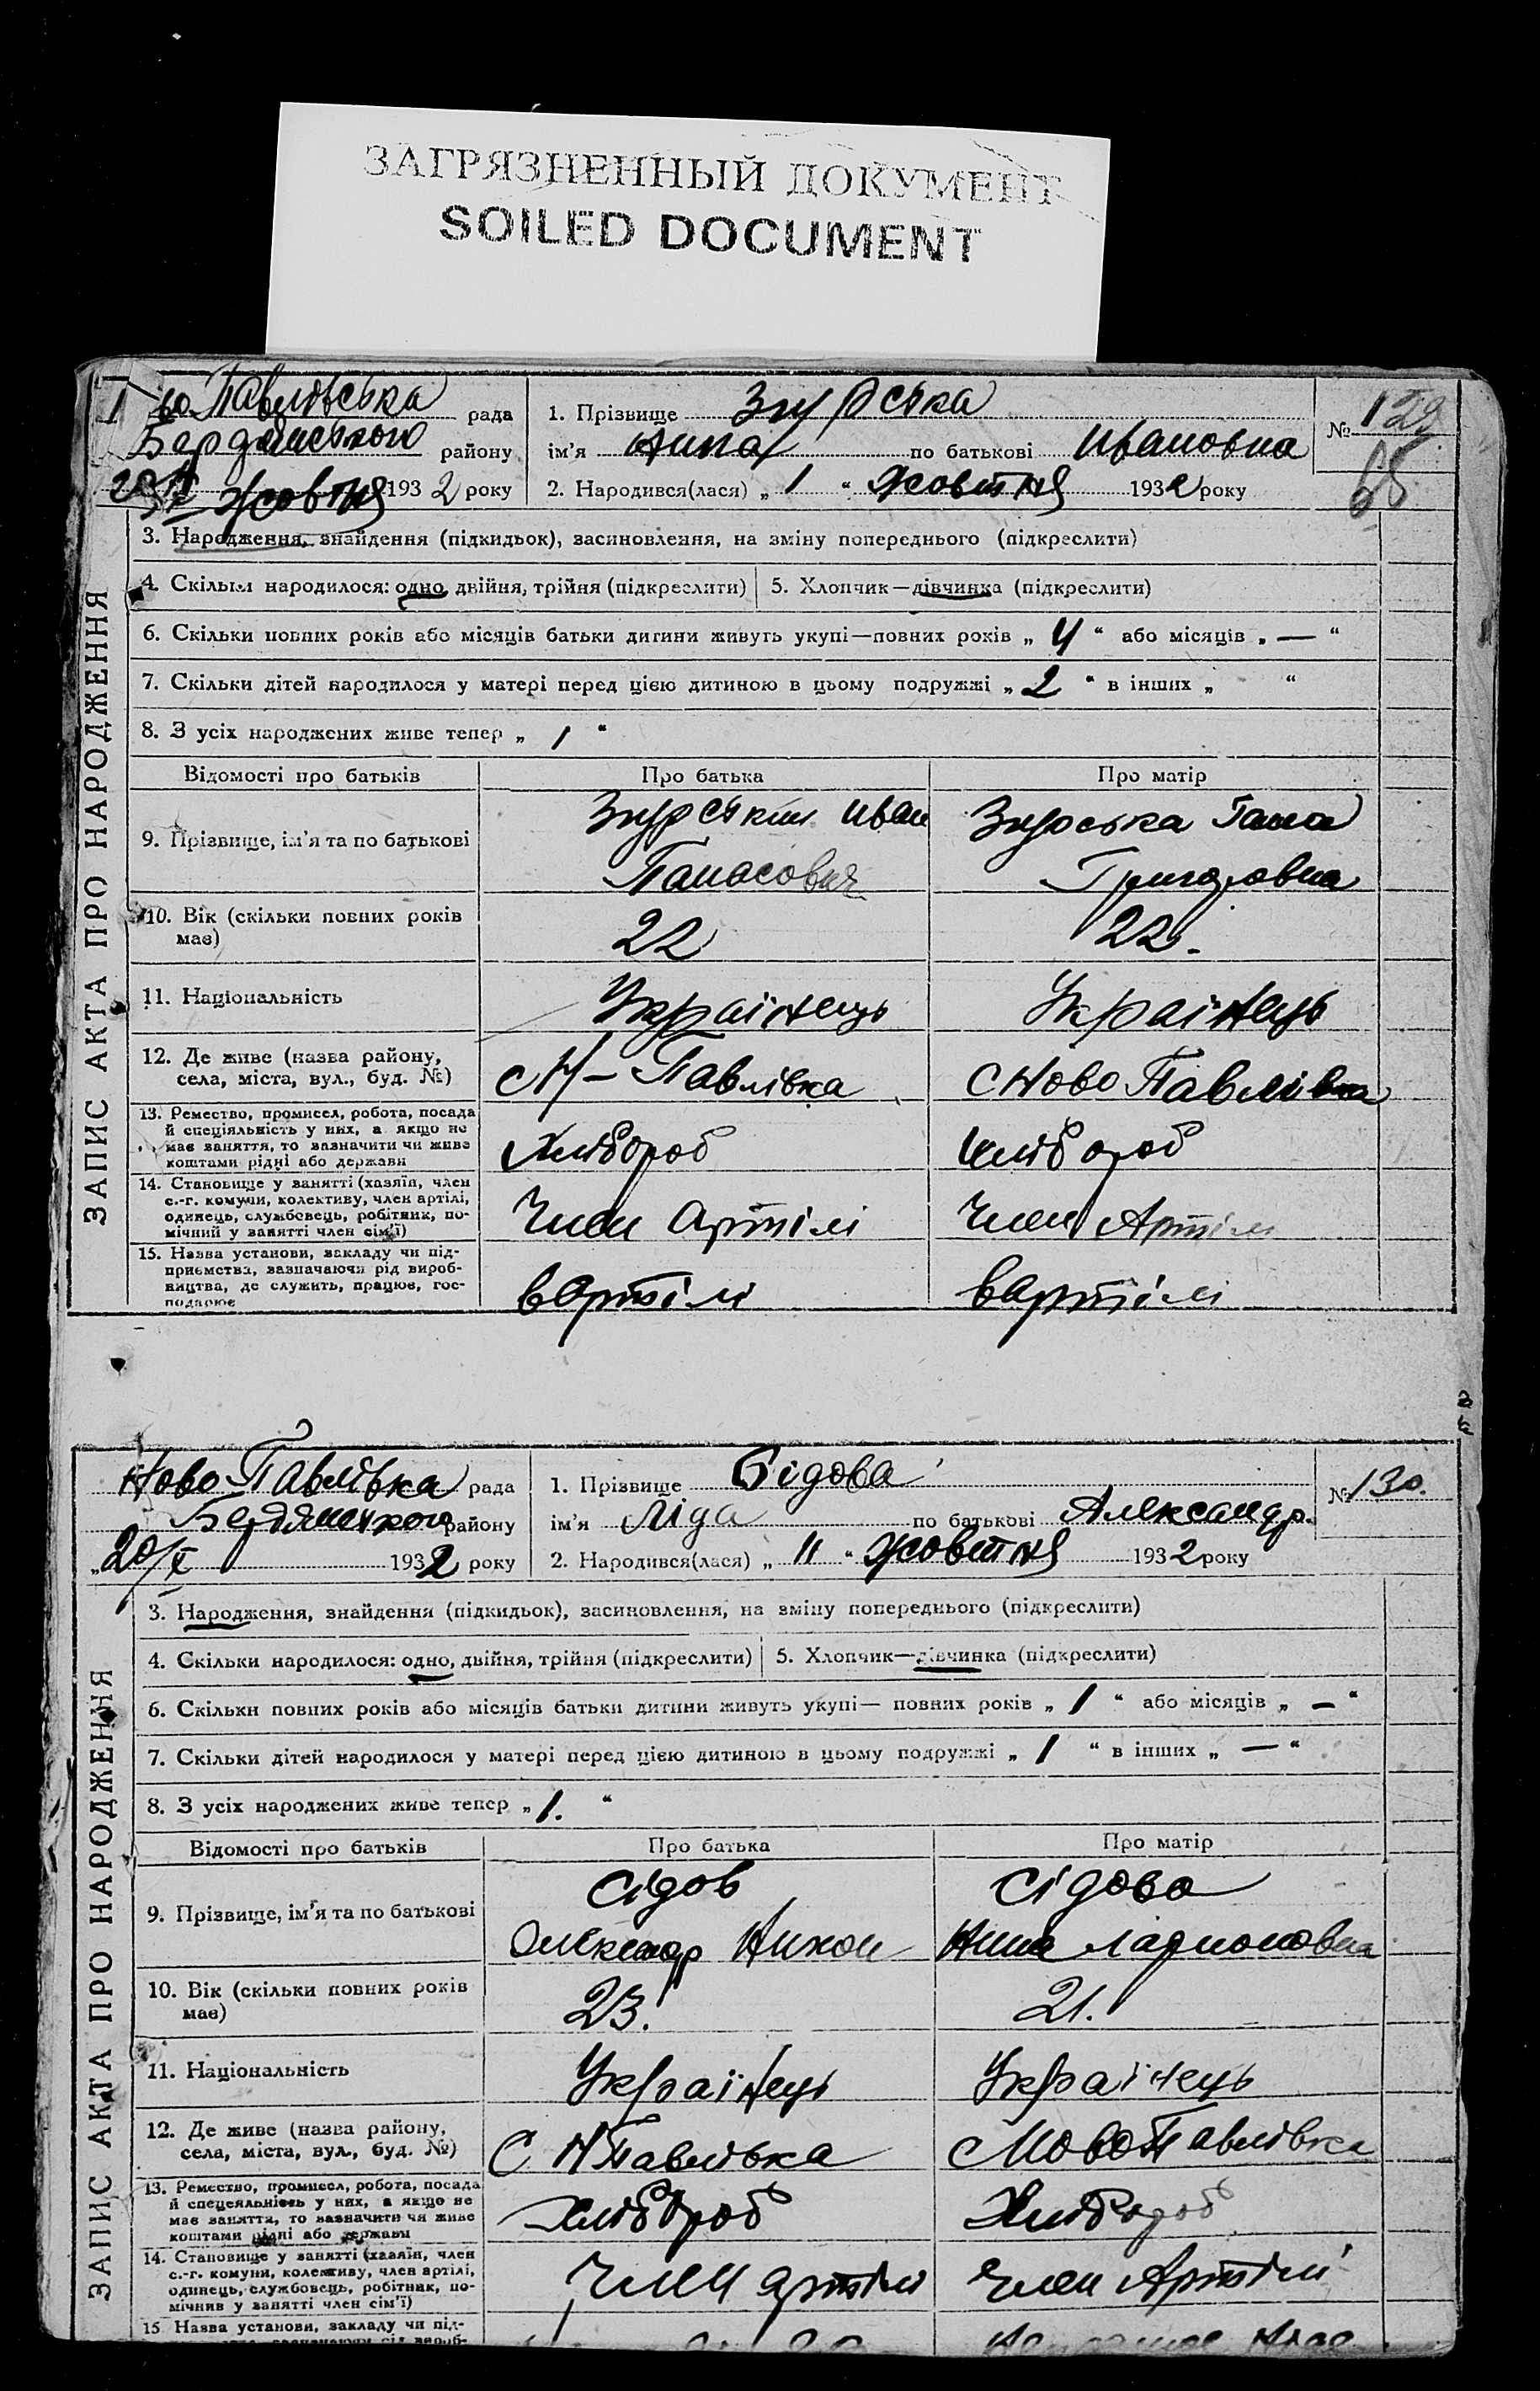 ЗАГРЯЗНЕННЫЙ ДОКУМЕНТ
SOILED DOCUMENT
Павлівська рада
Бердянського району
Жовтня 1932 року
1. Прізвище Знурська
ім'я Анна по батькові Ивановна
2. Народився(лася) „ 1 “ Жовтня 1932 року
№ 129
68
ЗАПИС АКТА ПРО НАРОДЖЕННЯ
3. Народження, знайдення (підкидьок), засиновлення, на зміну попереднього (підкреслити)
4. Скільки народилося: одно, двійня, трійня (підкреслити) 5. Хлопчик—дівчинка (підкреслити)
6. Скільки повних років або місяців батьки дитини живуть укупі—повних років „ 4 “ або місяців „ — “
7. Скільки дітей народилося у матері перед цією дитиною в цьому подружжі „ 2 “ в інших „ “
8. З усіх народжених живе тепер „ 1 “
Відомості про батьків Про батька Про матір
9. Прізвище, ім'я та по батькові
Знурськии Иван
Панасович
Знурська Гана
Григоровна
10. Вік (скільки повних років має)
22
22.
11. Національність
Українець
Українець
12. Де живе (назва району,
села, міста, вул., буд. №)
с Н-Павлівка
с Ново Павлівка
13. Ремество, промисел, робота, посада
й спеціяльність у них, а якщо не
має заняття, то зазначити чи живе
коштами рідні або держави
Хлібороб
Хлібороб
14. Становище у занятті (хазяїн, член
с.-г. комуни, колективу, член артілі,
одинець, службовець, робітник, по-
мічний у занятті член сім'ї)
Член Артілі
Член Артілі
15. Назва установи, закладу чи під-
приємства, зазначаючи рід вироб-
ництва, де служить, працює, гос-
подарює
в Артілі
в Артілі
Ново-Павлівка рада
Бердянського району
„20/X 1932 року
1. Прізвище Сідова
ім'я Ліда по батькові Александр.
2. Народився(лася) „ 11 “ Жовтня 1932 року
№ 130.
ЗАПИС АКТА ПРО НАРОДЖЕННЯ
3. Народження, знайдення (підкидьок), засиновлення, на зміну попереднього (підкреслити)
4. Скільки народилося: одно, двійня, трійня (підкреслити) 5. Хлопчик—дівчинка (підкреслити)
6. Скільки повних років або місяців батьки дитини живуть укупі— повних років „ 1 “ або місяців „ — “
7. Скільки дітей народилося у матері перед цією дитиною в цьому подружжі „ 1 “ в інших „ — “
8. З усіх народжених живе тепер „ 1. “
Відомості про батьків Про батька Про матір
9. Прізвище, ім'я та по батькові
Сідов
Олександр Никон
Сідова
Анна Ларионовна
10. Вік (скільки повних років має)
23.
21.
11. Національність
Українець
Українець
12. Де живе (назва району,
села, міста, вул., буд. №)
С Н Павлівка
с Ново Павлівка
13. Ремество, промисел, робота, посада
й спецеяльність у них, а якщо не
має заняття, то зазначити чи живе
коштами рідні або держави
Хлібороб
Хлібороб
14. Становище у занятті (хазяїн, член
с.-г. комуни, колективу, член артілі,
одинець, службовець, робітник, по-
мічнив у занятті член сім'ї)
Член артілі
Член Артілі
15 Назва установи, закладу чи під-